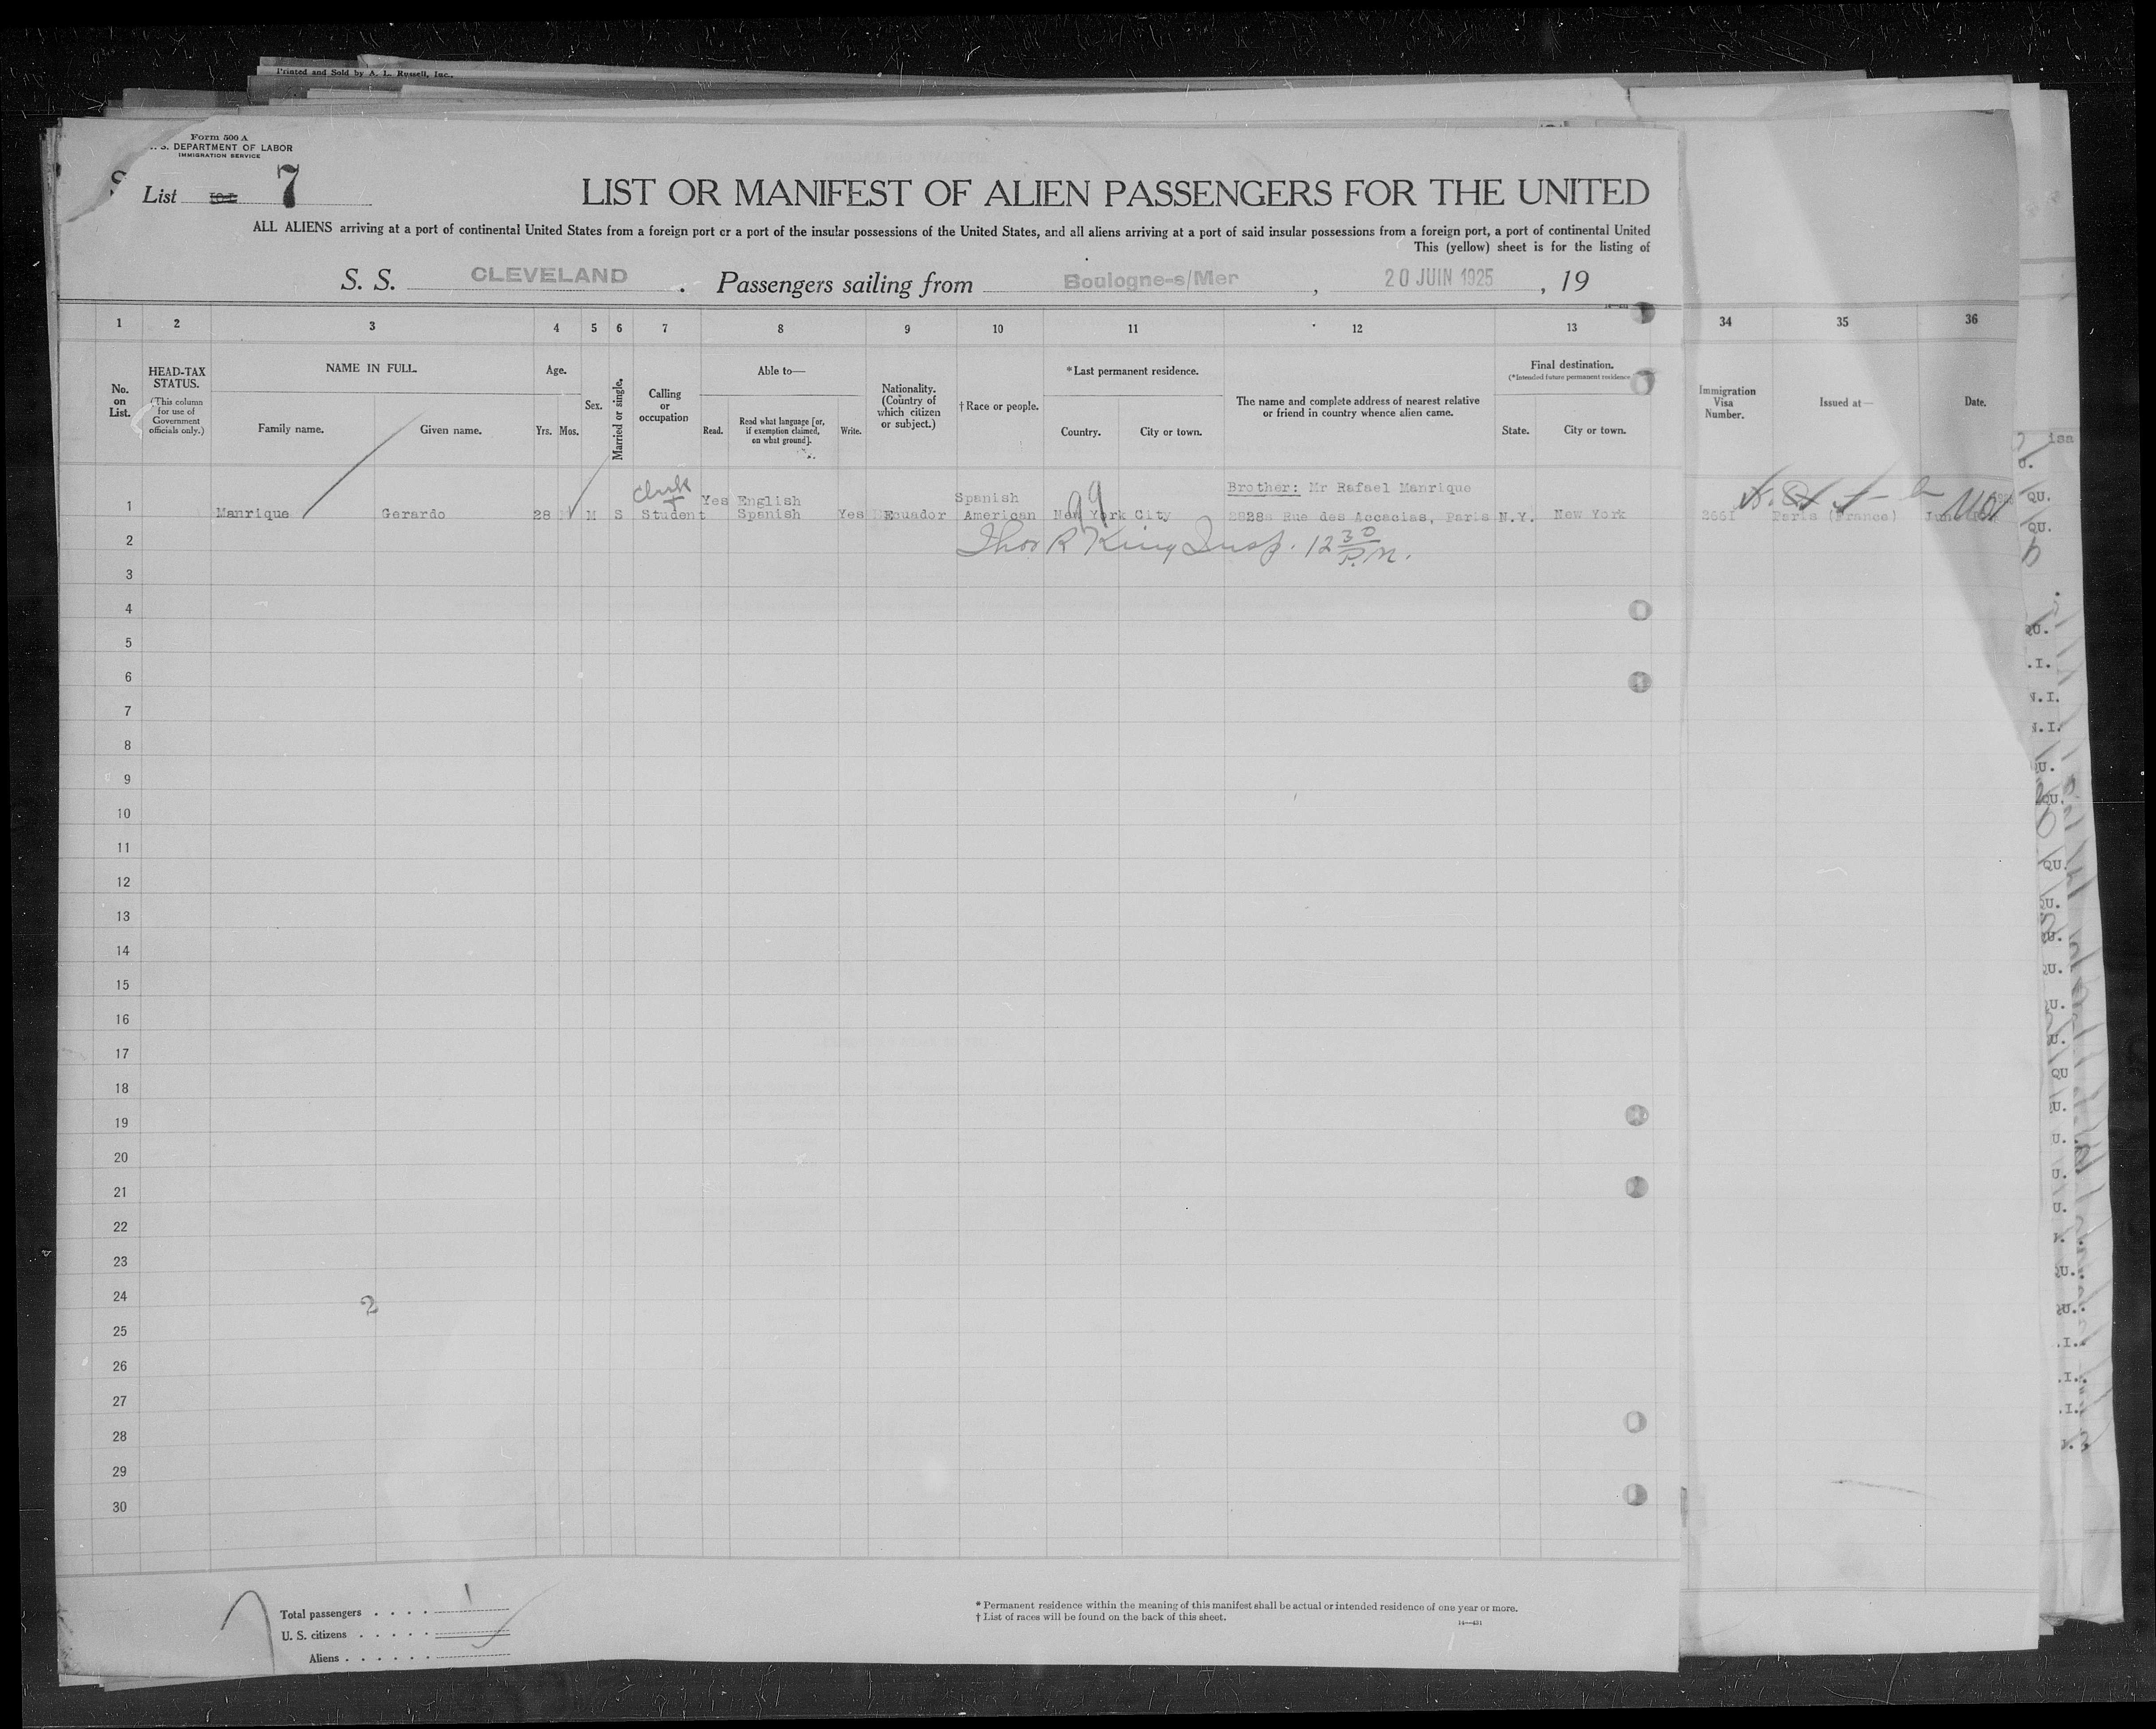 Printed and Sold by A. L. Russell, Inc.,
Form 500 A
S. DEPARTMENT OF LABOR
IMMIGRATION SERVICE
List 7
LIST OR MANIFEST OF ALIEN PASSENGERS FOR THE UNITED
ALL ALIENS arriving at a port of continental United States from a foreign port or a port of the insular possessions of the United States, and all aliens arriving at a port of said insular possessions from a foreign port, a port of continental United
This (yellow) sheet is for the listing of
S. S. CLEVELAND . Passengers sailing from Boulogne-s/Mer , 20 JUIN 1925 , 19
1 2 3 4 5 6 7 8 9 10 11 12 13 34 35 36
No. on List.
HEAD-TAX STATUS.
(This column for use of Government officials only.)
NAME IN FULL.
Family name. Given name.
Age.
Yrs. Mos.
Sex.
Married or single.
Calling or occupation
Able to—
Read. Read what language [or, if exemption claimed, on what ground]. Write.
Nationality. (Country of which citizen or subject.)
†Race or people.
*Last permanent residence.
Country. City or town.
The name and complete address of nearest relative or friend in country whence alien came.
Final destination.
(*Intended future permanent residence
State. City or town.
Immigration Visa Number.
Issued at—
Date.
Clerk
Yes English Spanish Brother: Mr Rafael Manrique
1 Manrique Gerardo 28 M S Student Spanish Yes Ecuador American New York City Rue des Accacias, Paris N.Y. New York Paris (France)
99
2 Thos R King Insp. 12 30 P.M.
3
4
5
6
7
8
9
10
11
12
13
14
15
16
17
18
19
20
21
22
23
24
2
25
26
27
28
29
30
Total passengers . . . . 1
U. S. citizens . . . . .
Aliens . . . . . .
* Permanent residence within the meaning of this manifest shall be actual or intended residence of one year or more.
† List of races will be found on the back of this sheet.
14—431